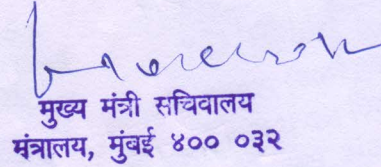 मुख्य मंत्री सचिवालय
मंत्रालय, मुंबई ४०० ०३२